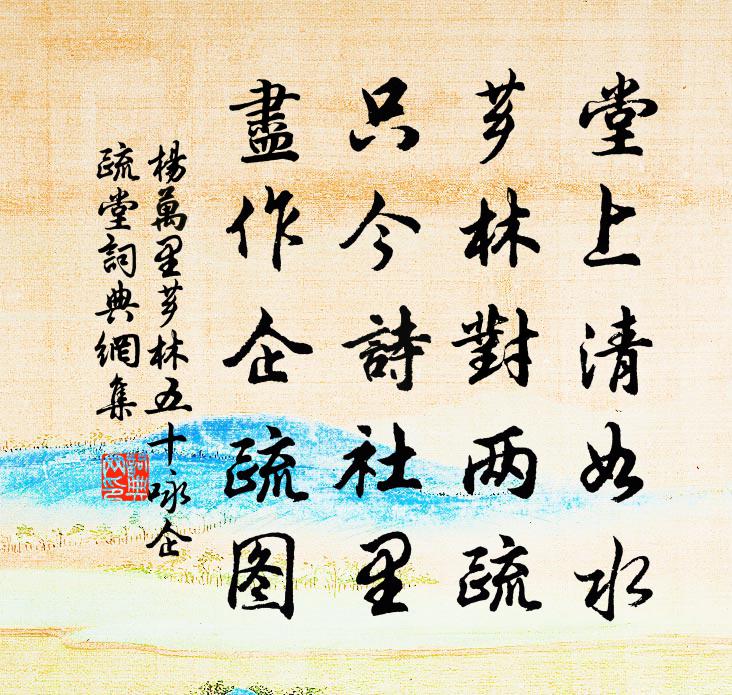 堂上清如水
芗林對两疏
只今詩社里
盡作企疏图
楊萬里芗林五十咏企
疏堂詞典網集
詞典